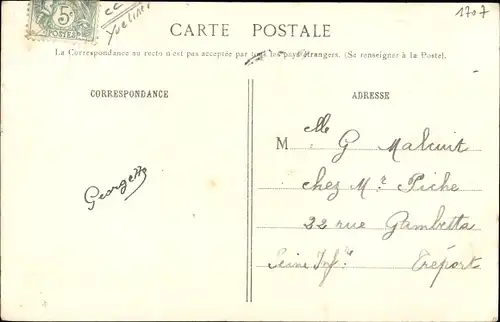 5c
POSTES
CC
Yvelines
1707
CARTE POSTALE
La Correspondance au recto n'est pas acceptée par tous les pays étrangers. (Se renseigner à la Poste).
CORRESPONDANCE
ADRESSE
Georgette
Mlle G Malcuit
chez Mr Piche
22 rue Gambetta
Seine Infre Tréport